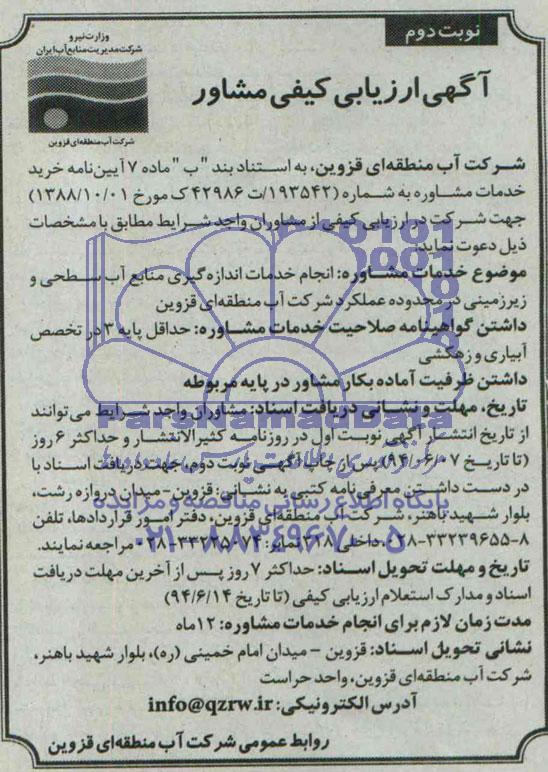 نوبت دوم
وزارت نیرو
شرکت مدیریت منابع آب ایران
شرکت آب منطقه‌ای قزوین
آگهی ارزیابی کیفی مشاور
شرکت آب منطقه‌ای قزوین، به استناد بند "ب" ماده ۷ آیین‌نامه خرید
خدمات مشاوره به شماره (۱۹۳۵۴۲/ت ۴۲۹۸۶ ک مورخ ۱۳۸۸/۱۰/۰۱)
جهت شرکت در ارزیابی کیفی از مشاوران واجد شرایط مطابق با مشخصات
ذیل دعوت نماید.
موضوع خدمات مشاوره: انجام خدمات اندازه‌گیری منابع آب سطحی و
زیرزمینی در محدوده عملکرد شرکت آب منطقه‌ای قزوین
داشتن گواهینامه صلاحیت خدمات مشاوره: حداقل پایه ۳ در تخصص
آبیاری و زهکشی
داشتن ظرفیت آماده بکار مشاور در پایه مربوطه
تاریخ، مهلت و نشانی دریافت اسناد: مشاوران واجد شرایط می‌توانند
از تاریخ انتشار آگهی نوبت اول در روزنامه کثیرالانتشار و حداکثر ۶ روز
(تا تاریخ ۹۴/۰۶/۰۷) پس از چاپ آگهی نوبت دوم، جهت دریافت اسناد با
در دست داشتن معرفی‌نامه کتبی به نشانی: قزوین - میدان دروازه رشت،
بلوار شهید باهنر، شرکت آب منطقه‌ای قزوین، دفتر امور قراردادها، تلفن
۸-۳۳۲۳۹۶۵۵-۰۲۸ داخلی ۳۲۸ نمابر: ۰۲۸-۳۳۲۲۵۸۷۴ مراجعه نمایند.
تاریخ و مهلت تحویل اسناد: حداکثر ۷ روز پس از آخرین مهلت دریافت
اسناد و مدارک استعلام ارزیابی کیفی (تا تاریخ ۹۴/۶/۱۴)
مدت زمان لازم برای انجام خدمات مشاوره: ۱۲ ماه
نشانی تحویل اسناد: قزوین - میدان امام خمینی (ره)، بلوار شهید باهنر،
شرکت آب منطقه‌ای قزوین، واحد حراست
آدرس الکترونیکی: info@qzrw.ir
روابط عمومی شرکت آب منطقه‌ای قزوین
ParsNamadData
پایگاه اطلاع رسانی مناقصه و مزایده
۰۲۱-۸۸۳۴۹۶۷۰-۵